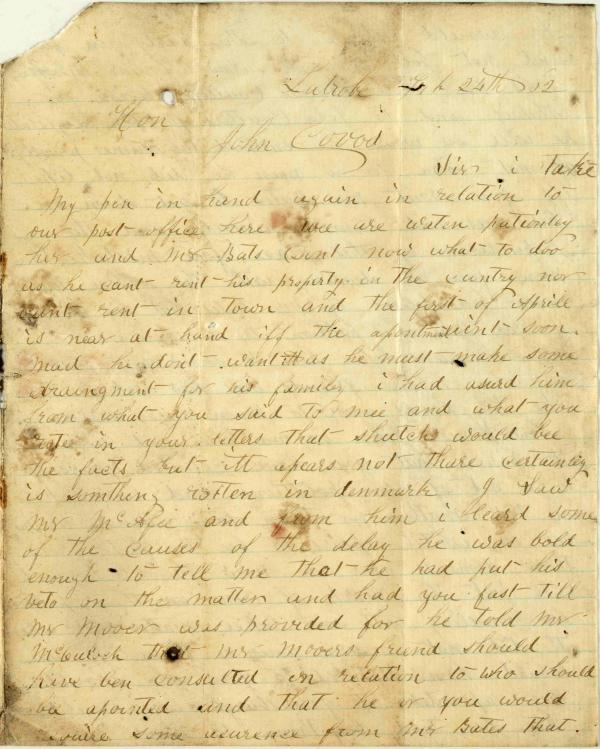 Latrobe Feb 24th 62
Hon
John Covod
Sir i take
My pen in hand again in relation to
our post office here we are waten patienley
her and Mr Bats cant now what to doo
as he cant rent his property in the cuntry nor
cant rent in town and the first of Aprill
is near at hand iff the apontment isint soon
mad he dont want itt as he must make some
araingment for his family i had asurd him
from what you said to mee and what you
rote in your letters that shutch would bee
the facts but itt apears not thare certainley
is somthing rotten in denmark I saw
Mr McAfee and from him i leard some
of the causes of the delay he was bold
enough to tell me that he had put his
veto on the matter and had you fast till
Mr Moover was provided for he told Mr
McCuloch that Mr Moovers frend should
have ben consulted in relation to who should
be apointed and that he or you would
require some asurence from Mr Bates that